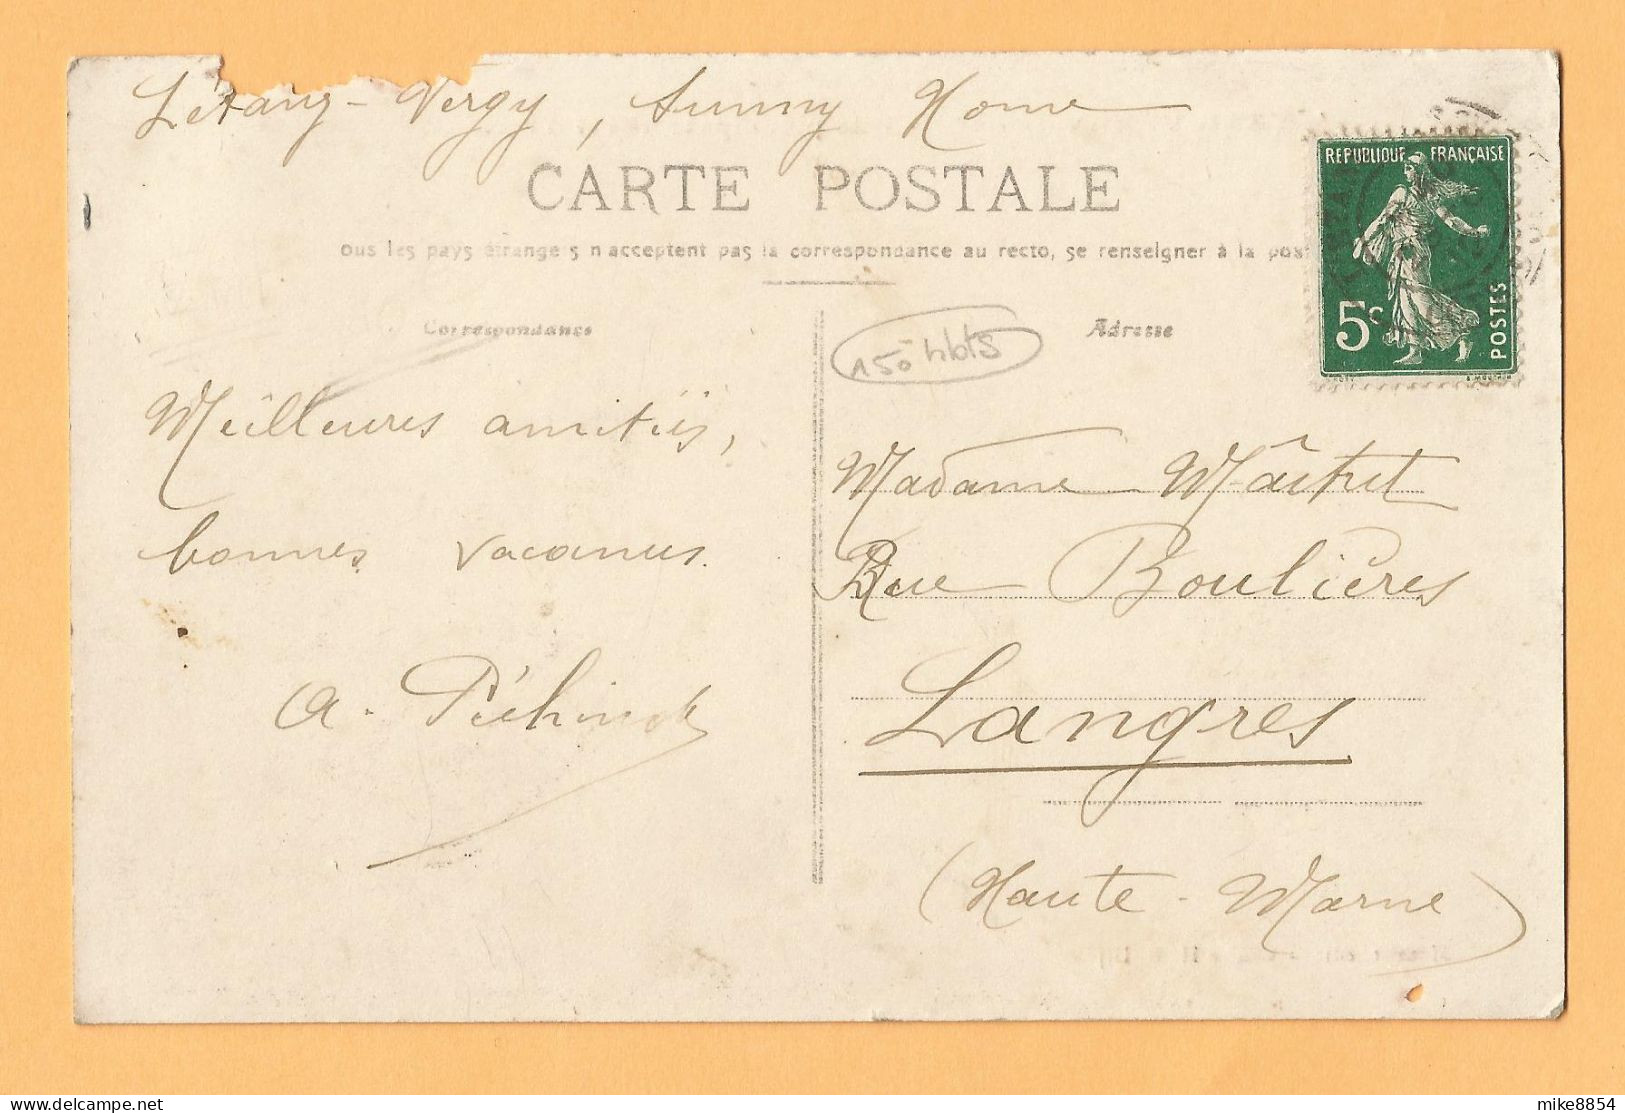 L'étang-Vergy, Sunny Home
CARTE POSTALE
ous les pays étrangers n'acceptent pas la correspondance au recto, se renseigner à la post
REPUBLIQUE FRANÇAISE
5c
POSTES
Correspondance
Adresse
150 hbts
Meilleures amitiés,
bonnes vacances.
Madame Mâitret
Rue Boulières
Langres
(Haute-Marne)
mike8854